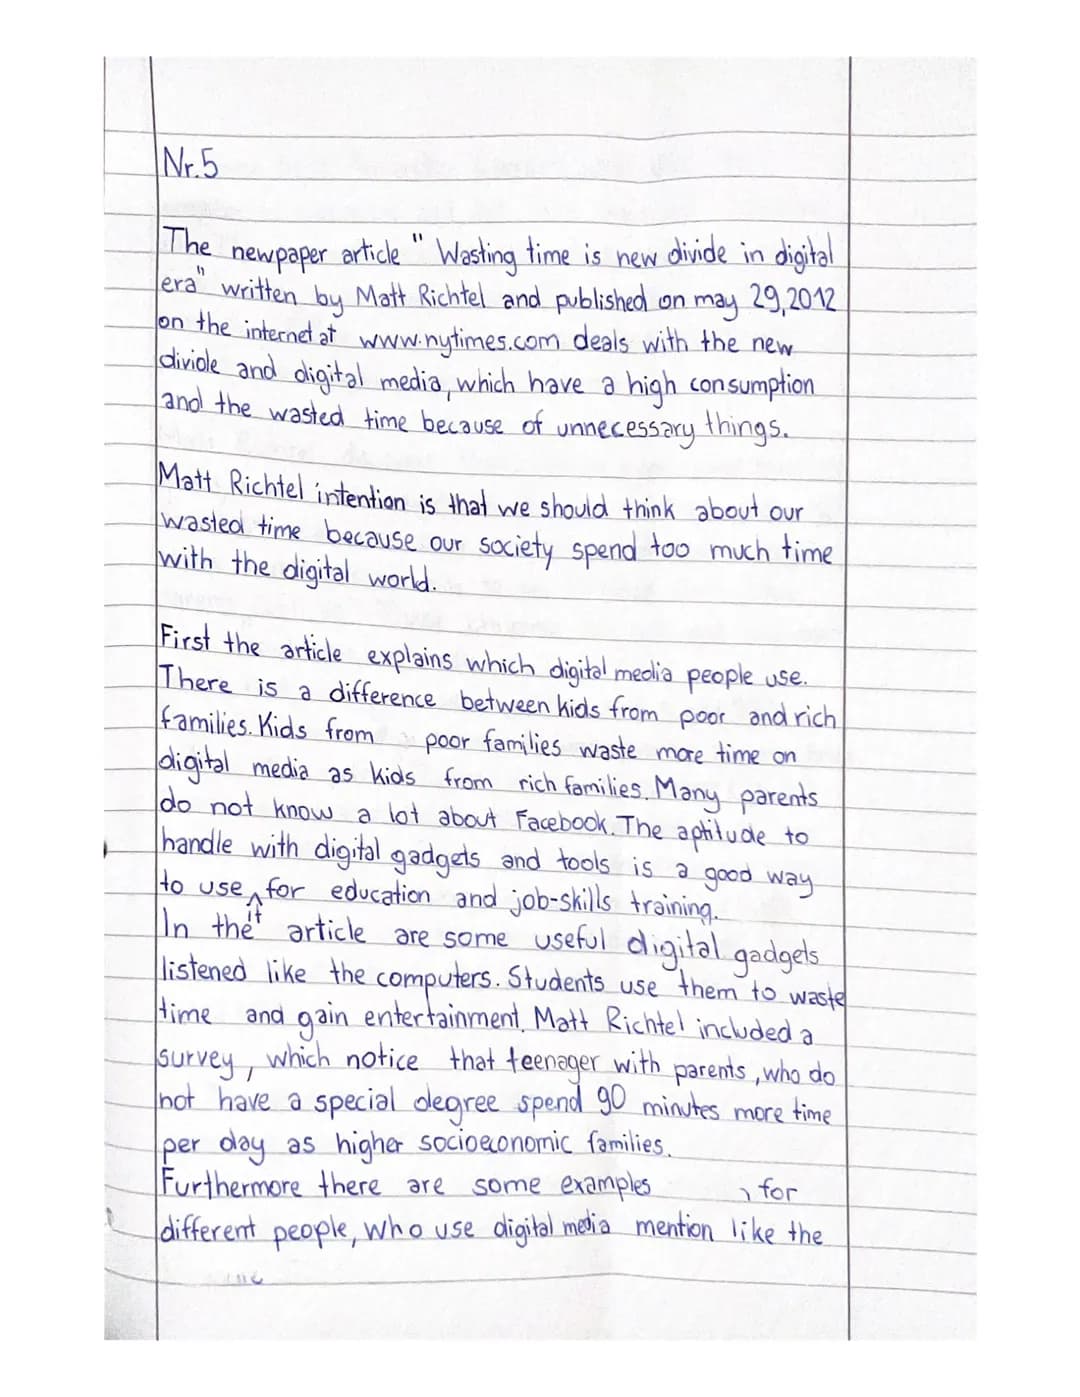 Nr.5
The newpaper article "Wasting time is new divide in digital
era" written by Matt Richtel and published on may 29,2012
on the internet at www.nytimes.com deals with the new
divide and digital media, which have a high consumption
and the wasted time because of unnecessary things.
Matt Richtel intention is that we should think about our
wasted time because our society spend too much time
with the digital world.
First the article explains which digital media people use.
There is a difference between kids from poor and rich
families. Kids from poor families waste more time on
digital media as kids from rich families. Many parents
do not know a lot about Facebook. The aptitude to
handle with digital gadgets and tools is a good way
to use it for education and job-skills training.
In the article are some useful digital gadgets
listened like the computers. Students use them to waste
time and gain entertainment. Matt Richtel included a
survey, which notice that teenager with parents, who do
not have a special degree spend 90 minutes more time
per day as higher socioeconomic families.
Furthermore there are some examples , for
different people, who use digital media mention like the